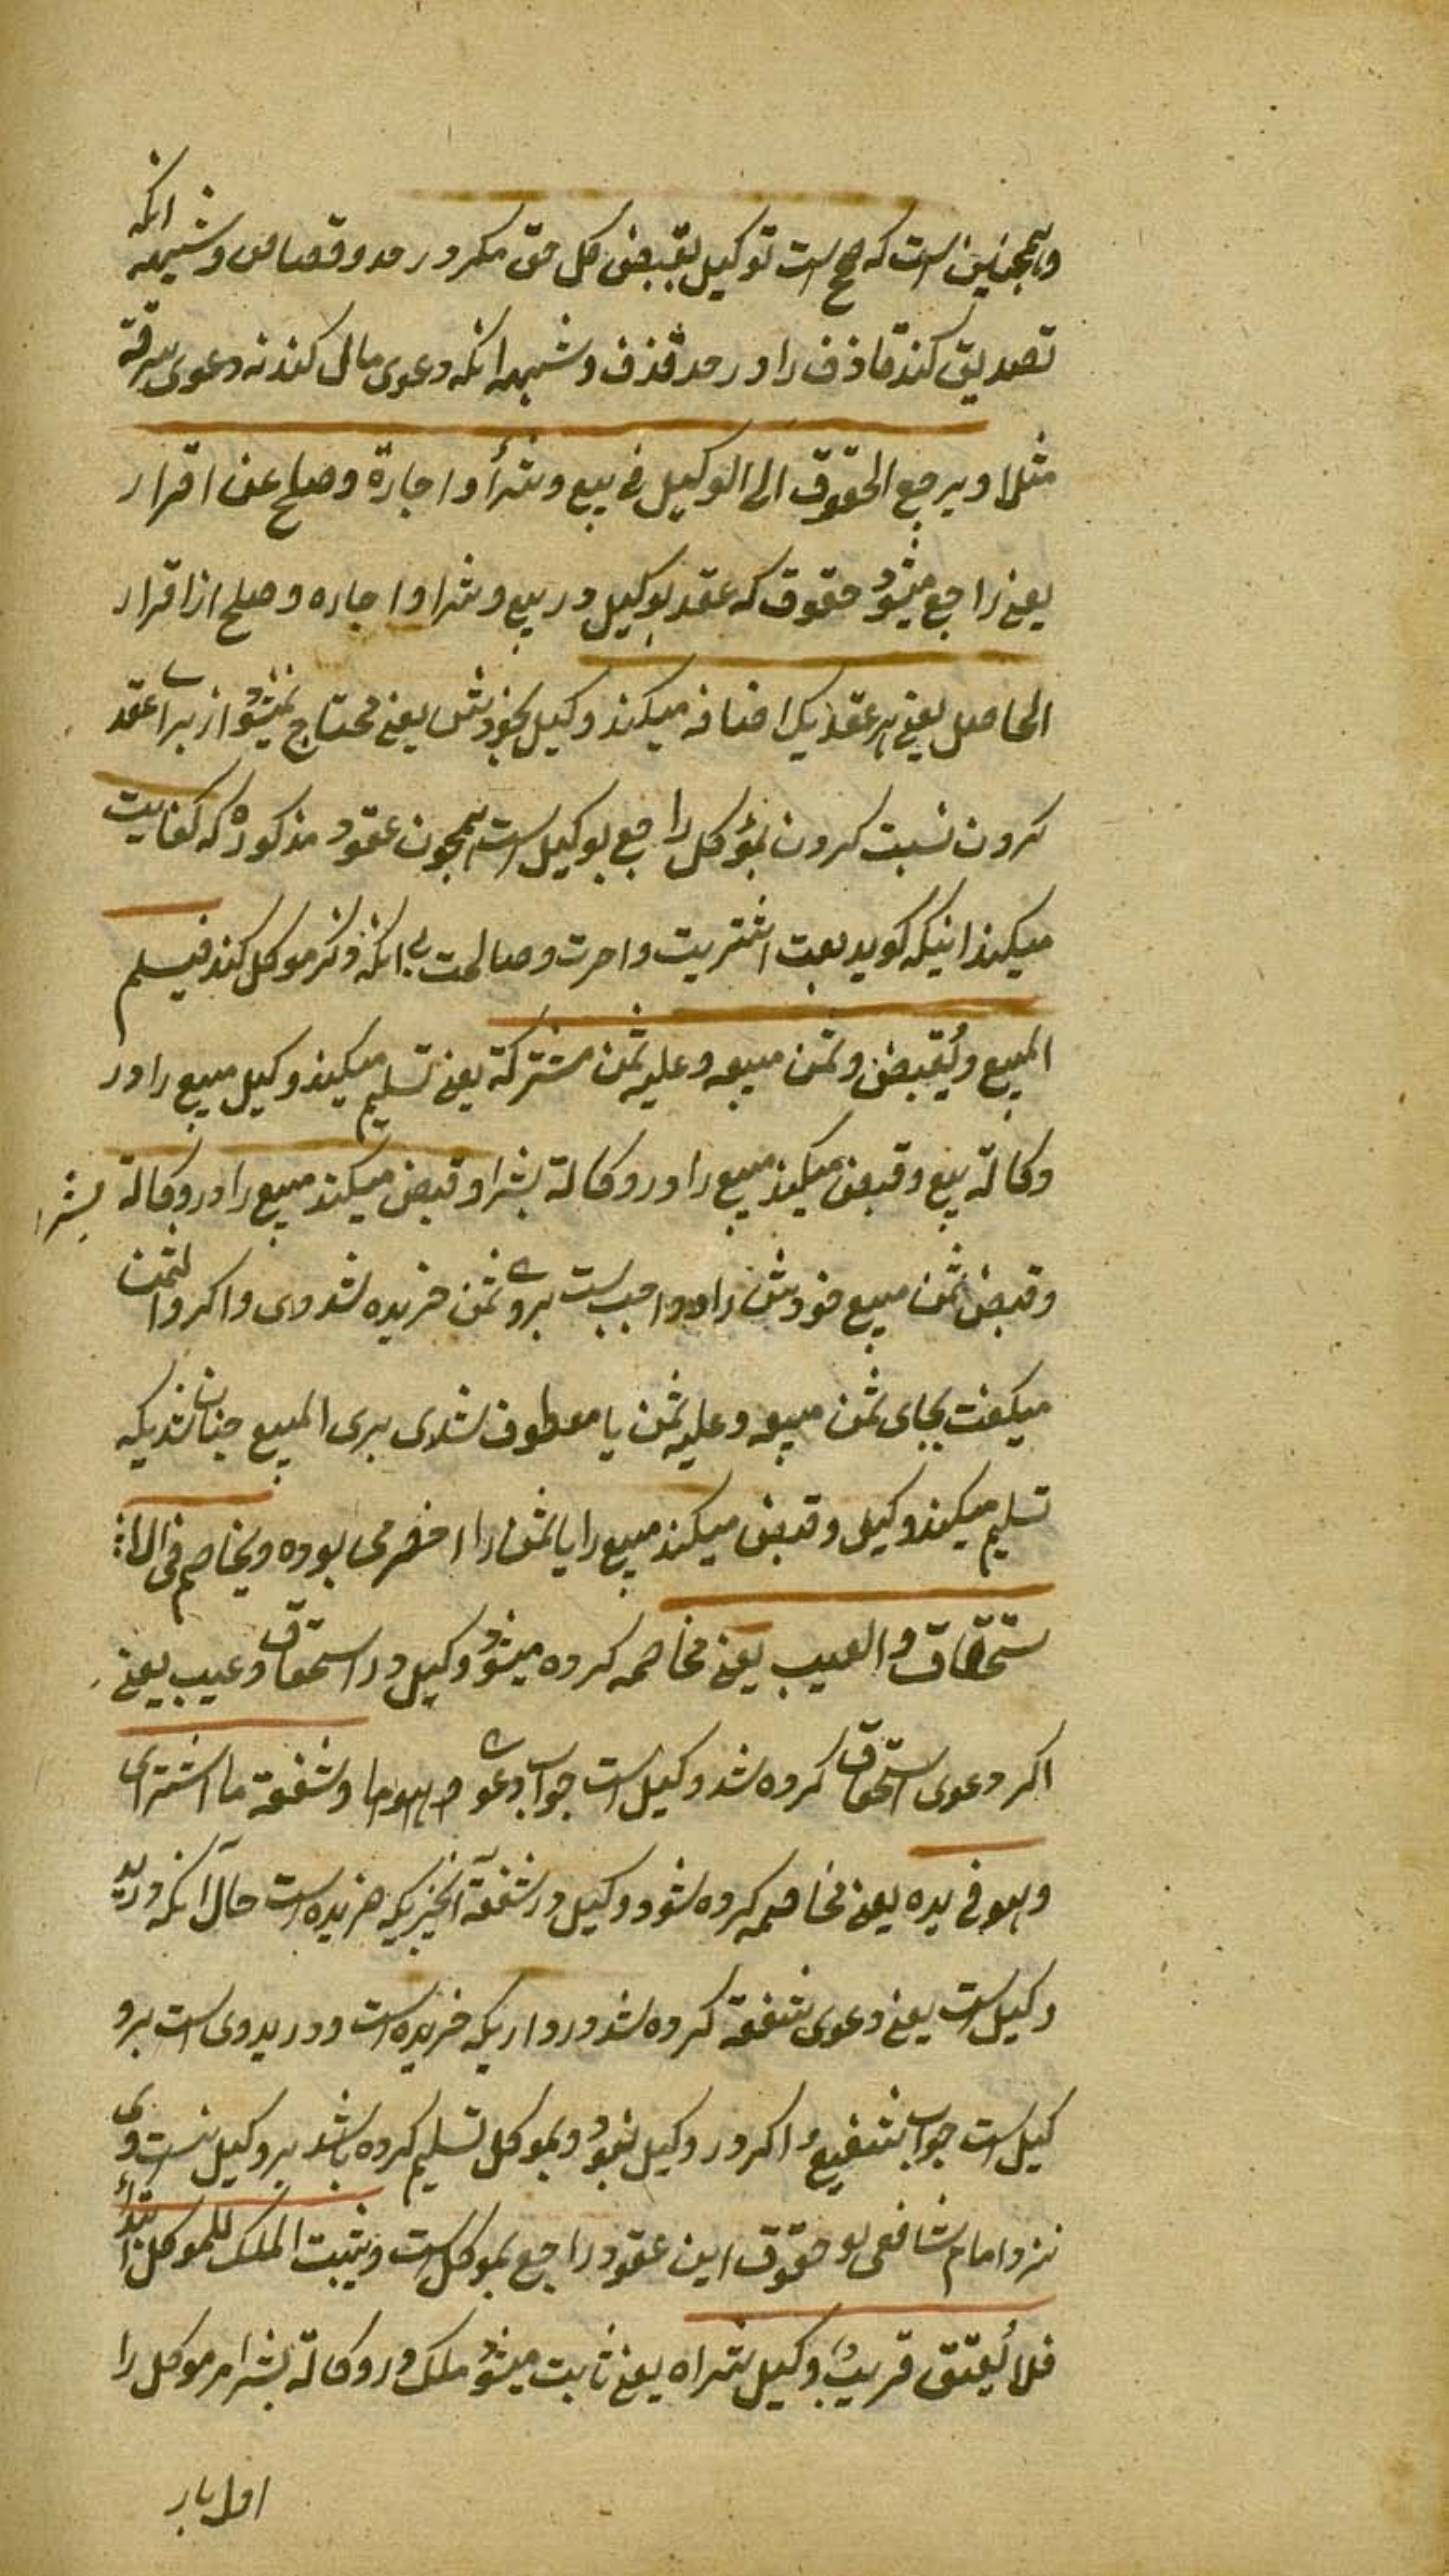 وهمچنین است که صحیح است توکیل بقبض کل حق مکر در حد و قصاص و شبهه انکه
تصدیق کند قاذف را در حد قذف و شبهه انکه دعوی مال کند نه دعوی سرقة
مثلا ویرجع الحقوق الی الوکیل فی بیع وشرأ واجارة وصلح عن اقرار
یعنی راجع میشود حقوق که عقد بوکیل در بیع و شرا و اجاره و صلح از اقرار
الحاصل یعنی هر عقدیکه اضافه میکند وکیل بخودش یعنی محتاج نمیشود از برای عقد
کردن نسبت کردن بمؤکل راجع بوکیل است همچون عقود مذکوره که کفایت
میکند اینکه کوید بعت اشتریت واجرت وصالحت بی انکه ذکر موکل کند فیسلم
المبیع ویُقبض وثمن مبیعه وعلیه ثمن مشترکة یعنی تسلیم میکند وکیل مبیع را در
وکالة بیع وقبض میکند مبیع را در وکالة بشرا وقبض میکند مبیع را در وکالة بشرا
وقبض ثمن مبیع خودش را و واجب است بروی ثمن خریده شده وی واکر والثمن
میکفت بجای ثمن مبیعه وعلیه ثمن یا معطوف شدی بری المبیع چنان شدیکه
تسلیم میکند وکیل وقبض میکند مبیع را یا ثمن را اخصر می بوده ویخاصم فی الا
ستحقاق والعیب یعنی مخاصمه کرده میشود وکیل در استحقاق وعیب یعنی
اکر دعوی استحقاق کرده شد وکیل است جواب دعوی وشفعة ما اشتری
وهو فی یده یعنی مخاصمه کرده شود وکیل در شفعة آنچیزیکه خریده است حال آنکه در ید
وکیل است یعنی دعوی شفعة کرده شد در داریکه خریده است ودر ید وی است برو
کیل است جواب شفیع واکر در وکیل نبود وبموکل تسلیم کرده باشد بر وکیل نیست وی
نزد امام شافعی حقوق این عقود راجع بموکل است ویثبت الملک للموکل ابتدأ
فلا یُعتق قریبُ وکیل شراه یعنی ثابت میشود ملک در وکالة بشرا مر موکل را
اول بار